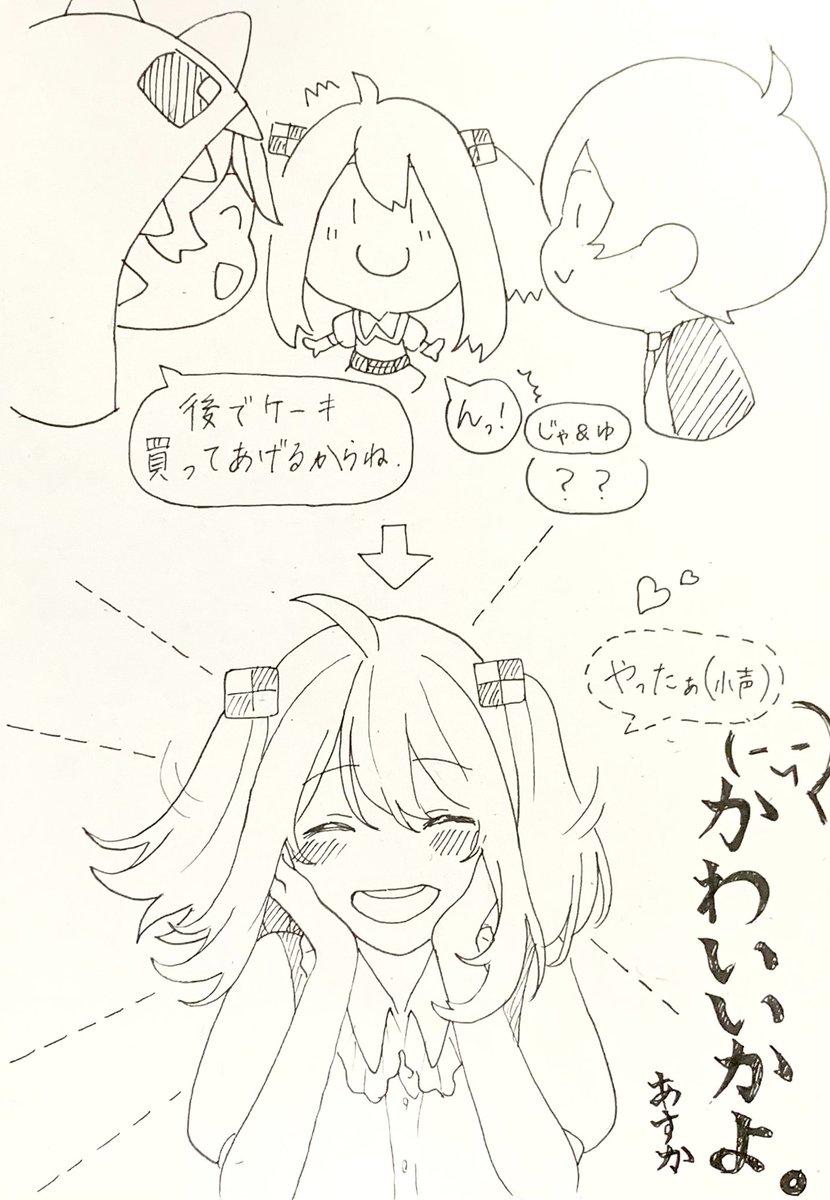 後でケーキ
買ってあげるからね.
んっ!
じゃ&ゆ
??
やったぁ(小声)
かわいいかよ。
あすか